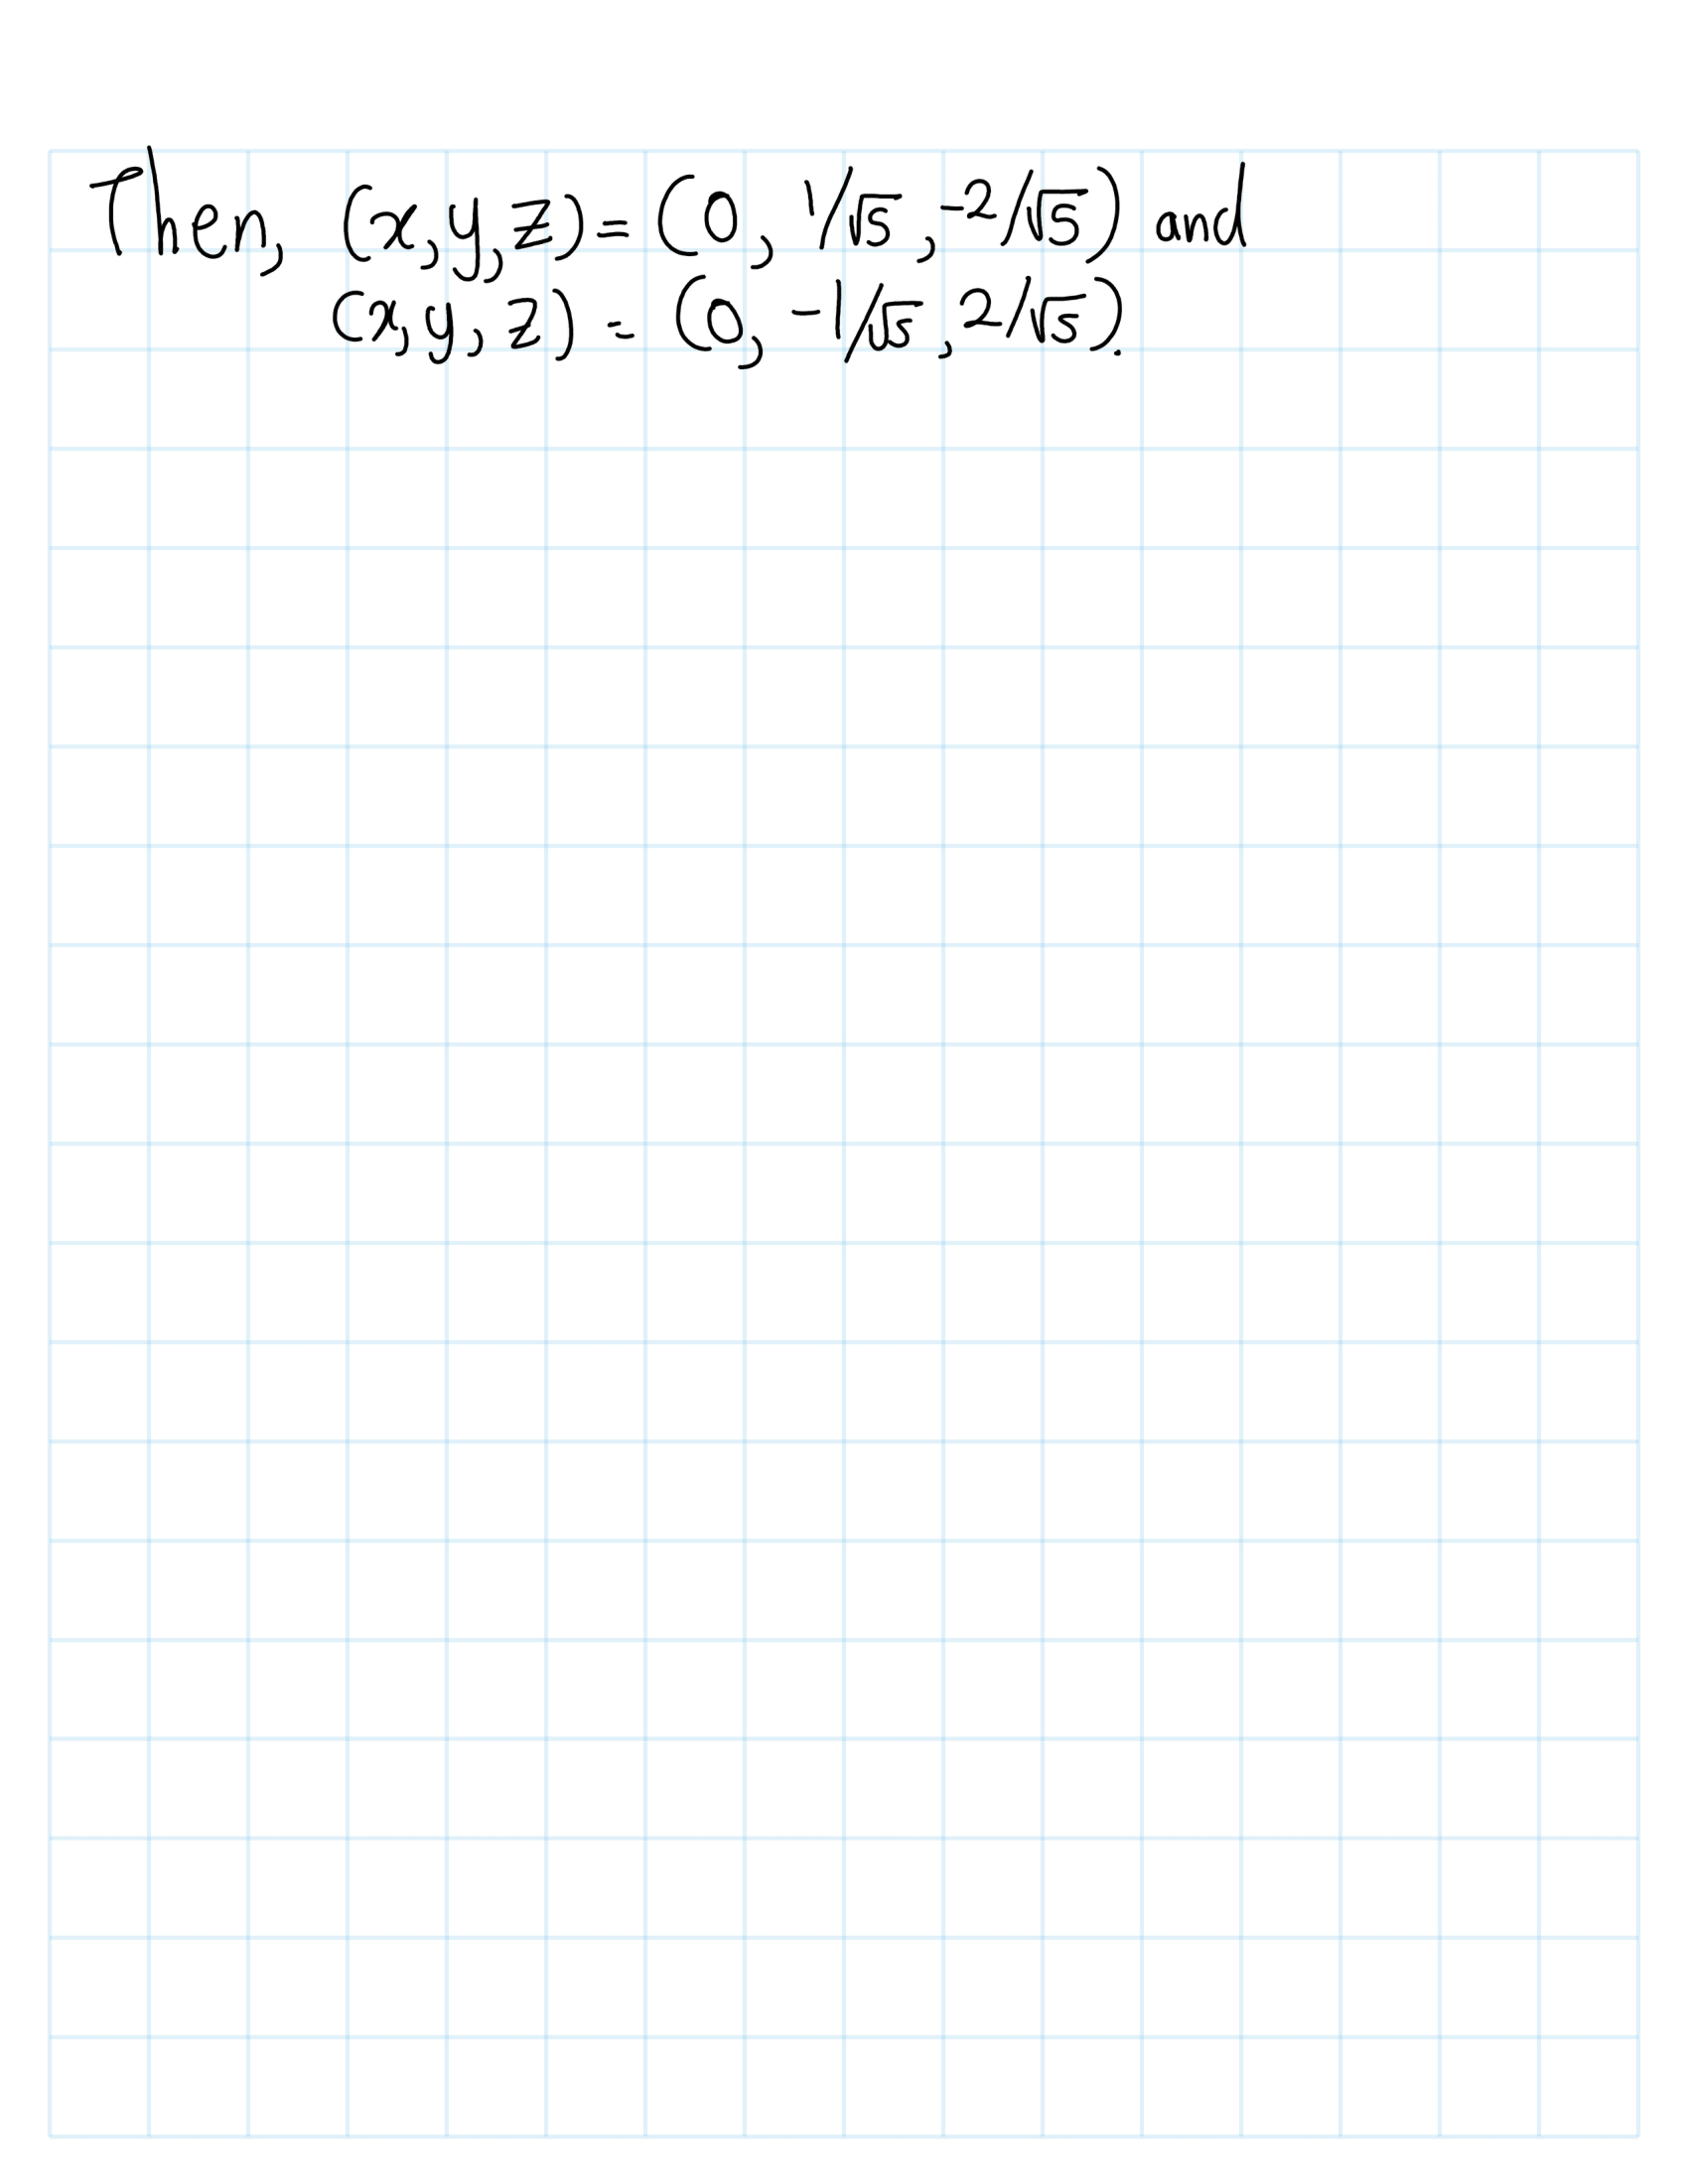 Then, (x,y,z) = (0, 1/√5, -2/√5) and
(x,y,z) = (0, -1/√5, 2/√5).